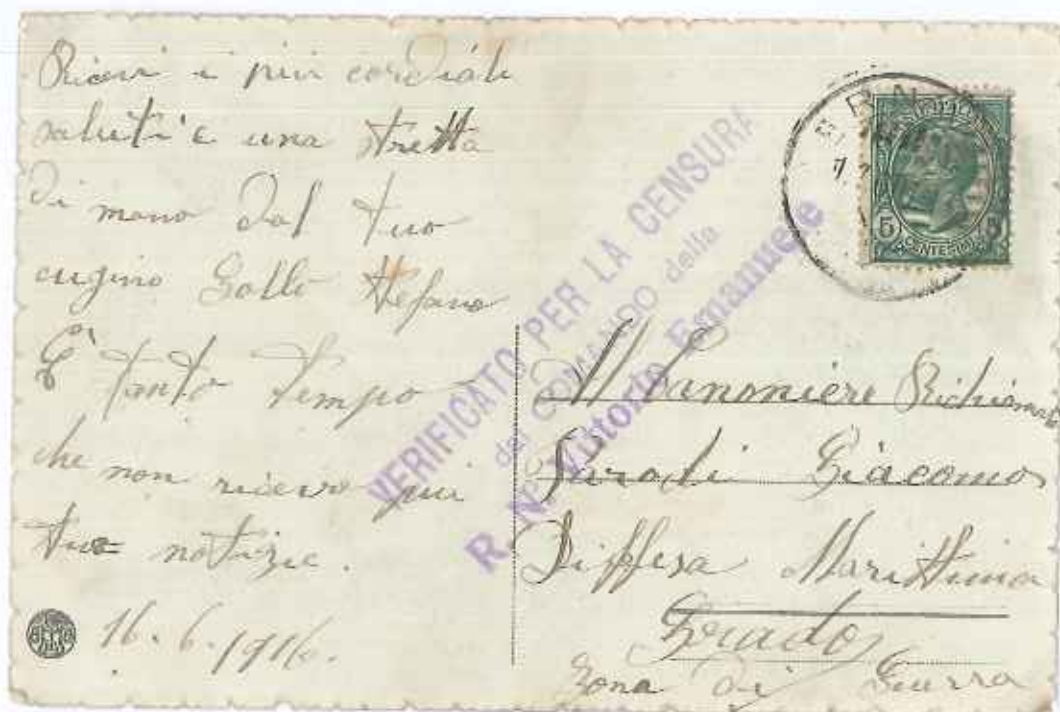 Ricevi i più cordiali
saluti e una stretta
di mano dal tuo
cugino Gallo Stefano
È tanto tempo
che non ricevo più
tue notizie.
16.6.1916.
VERIFICATO PER LA CENSURA
dal COMANDO della
R. N. Vittorio Emanuele
5
CENTESIMI
Al Canoniere Richiamato
Parodi Giacomo
Diffesa Marittima
Grado
Zona di Guerra